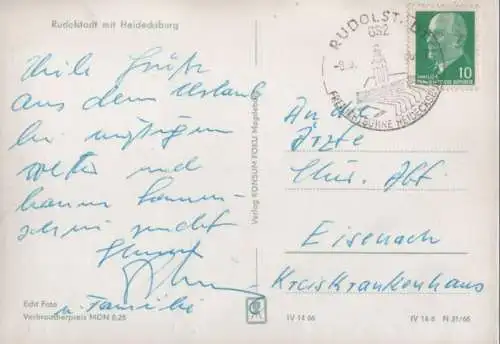 Rudolstadt mit Heidecksburg
Viele Grüße
aus dem Urlaub
bei
Wetter und
kaum Sonnen-
schein sendet
u. Familie
Echt Foto
Verbraucherpreis MDN 0,25
Verlag KONSUM FOKU Magdeburg
RUDOLSTADT
FREILICHTBÜHNE HEIDECKSBURG
10
An die
Ärzte
Chir. Abt.
Eisenach
Kreiskrankenhaus
IV 14 66
IV 14 6 N 31/66